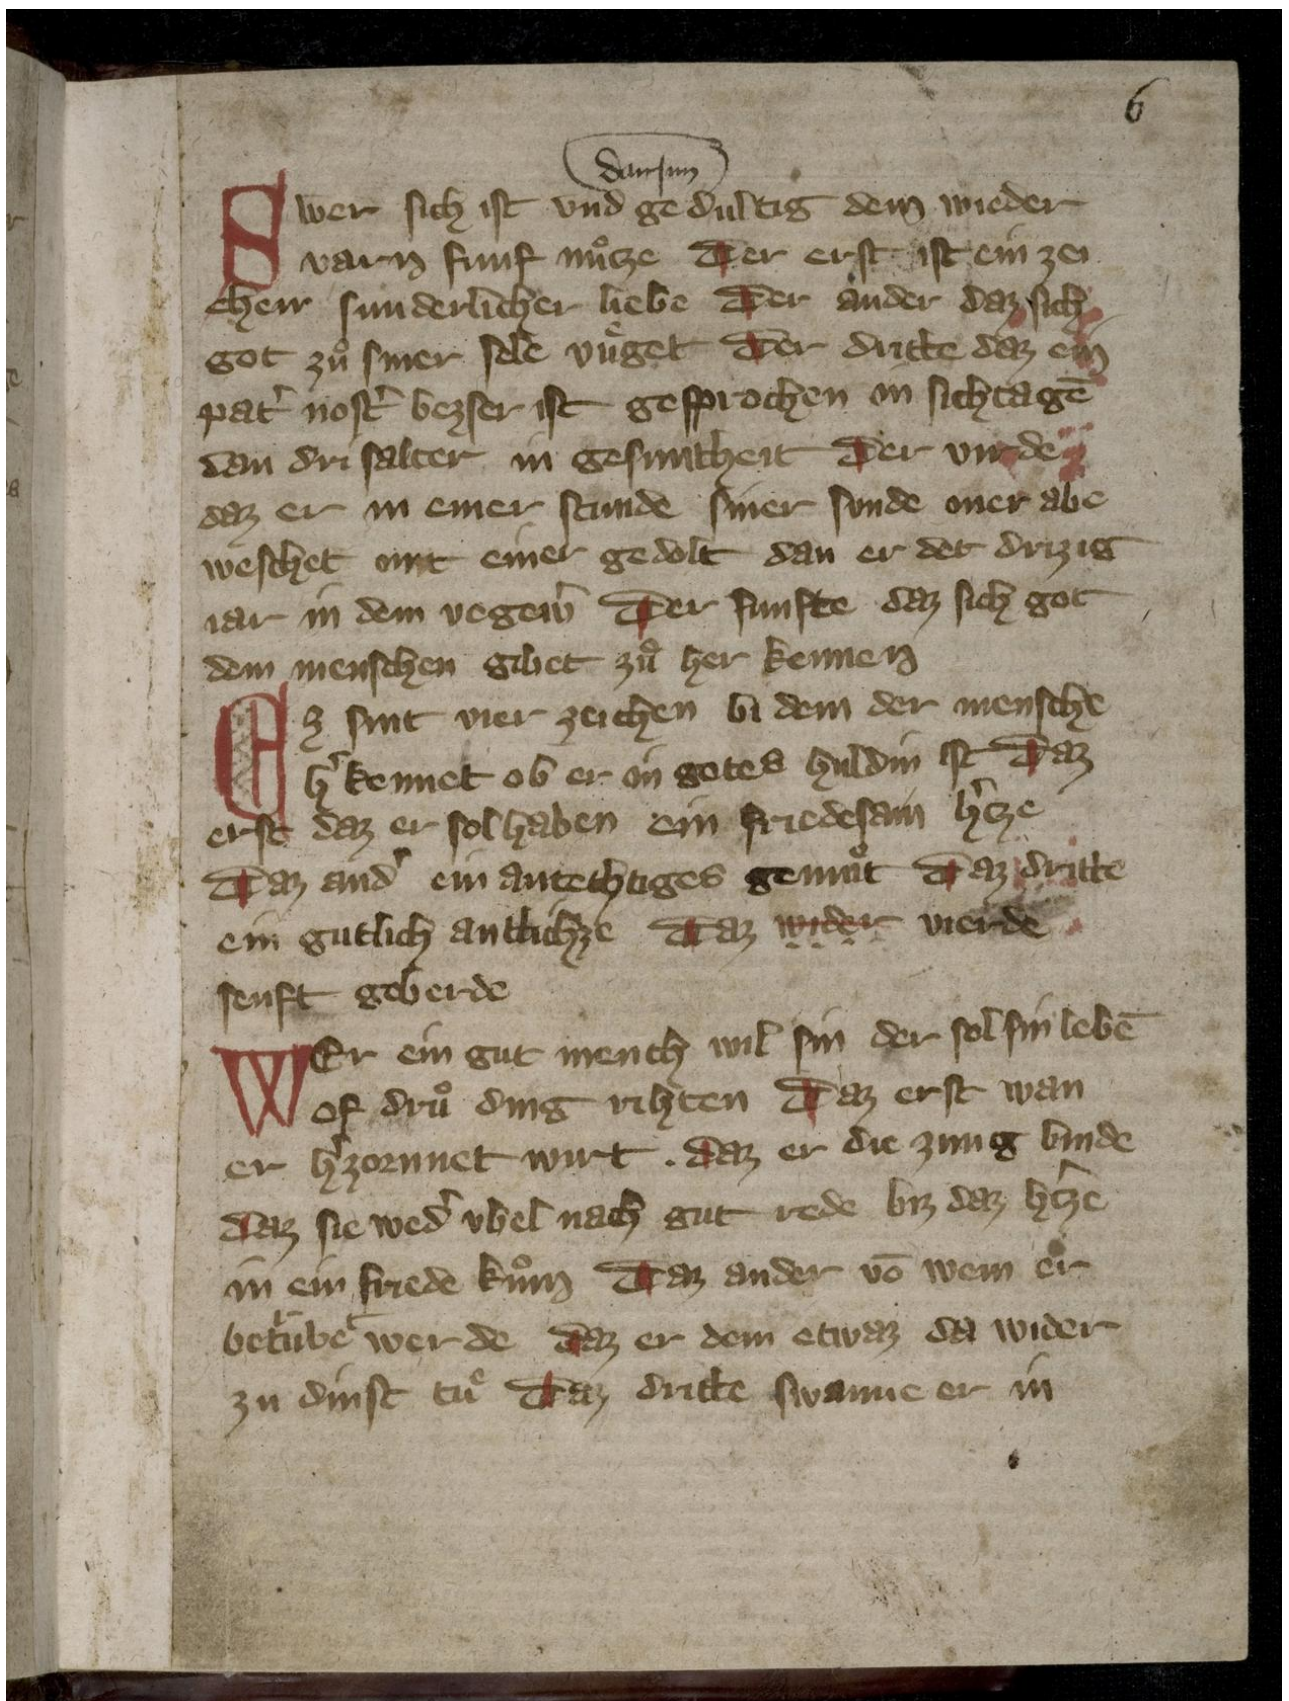 6
dar jnn
Swer sich ist vnd gedultig dem wieder
varn funf nuͦcze Der erst ist ein zei
chein sunderlicher liebe Der ander daz sich
got zuͦ siner sele vuͤget Der dritte daz ein
pat᷑ nost᷑ bezser ist gesprochen in sichtagē
dan dri salter in gesuntheit Der virde
daz er in einer stunde siner sunde mer abe
weschet mit einer gedolt dan er det drizig
iar in dem vegeuͥr Der funfte daz sich got
dem menschen gibet zuͦ her kennen
Ez sint vier zeichen bi dem der mensche
h᷑ kennet ob er in gotes huldin ist Daz
erst daz er sol haben ein friedesam h᷑cze
Daz and᷑ ein antechtiges gemuͦt Daz dritte
ein gutlich antlichze Daz wider vierde
senft geberde
WEr ein gut mench wil sin der sol sin lebē
of druͦ ding rihten Daz erst wan
er h᷑zornnet wirt . daz er die zung binde
daz sie wed᷑ vbel nach gut rede biz daz h᷑cze
in ein friede kuͦm Daz ander vō wem er
betrube werde daz er dem etwaz da wider
zu dinst tuͤ Daz dritte swanne er in